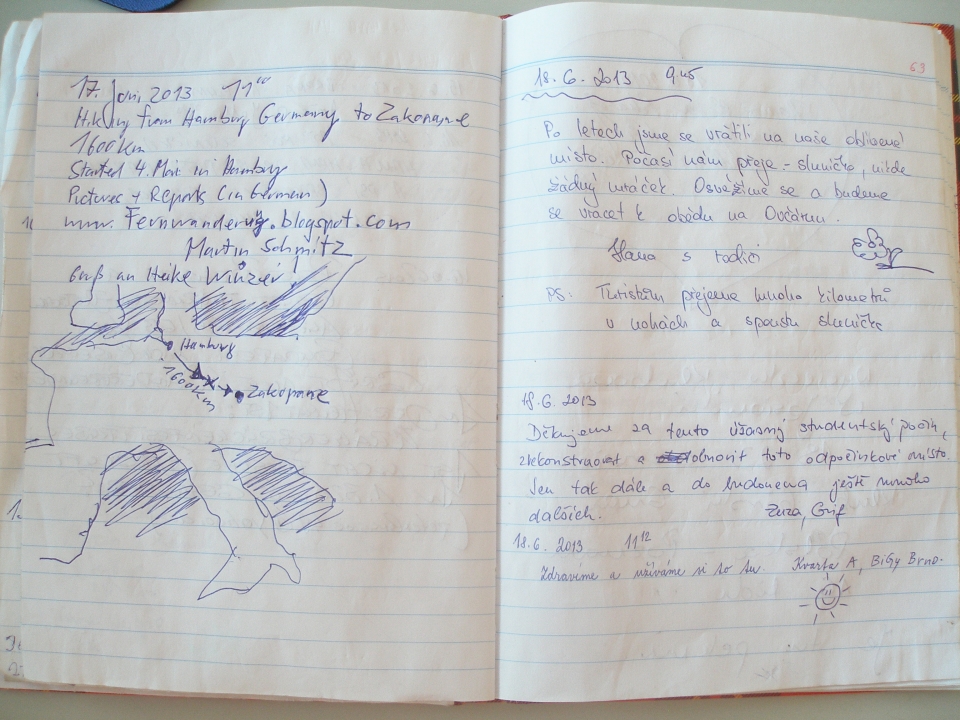 17. Juni 2013 11⁰⁰
Hiking from Hamburg Germany to Zakopane
1600km
Started 4. Mai in Hamburg
Pictures + Reports (in German)
www.Fernwanderung.blogspot.com
Martin Schmitz
Gruß an Heike Winzer
Hamburg
1600km
Zakopane
69
18.6. 2013 9:45
Po letech jsme se vrátili na naše oblíbené
místo. Počasí nám přeje - sluníčko, nikde
žádný mráček. Osvěžíme se a budeme
se vracet k obědu na Ovčárnu.
Hana s rodiči
PS: Turistům přejeme mnoho kilometrů
v nohách a spoustu sluníčka
18.6. 2013
Děkujeme za tento úžasný studentský počin,
zrekonstruovat a obnovit toto odpočinkové místo
Jen tak dále a do budoucna ještě mnoho
dalších. Zuza, Grif
18.6. 2013 11¹²
Zdravíme a užíváme si to tu. Kvarta A, BiGy Brno.